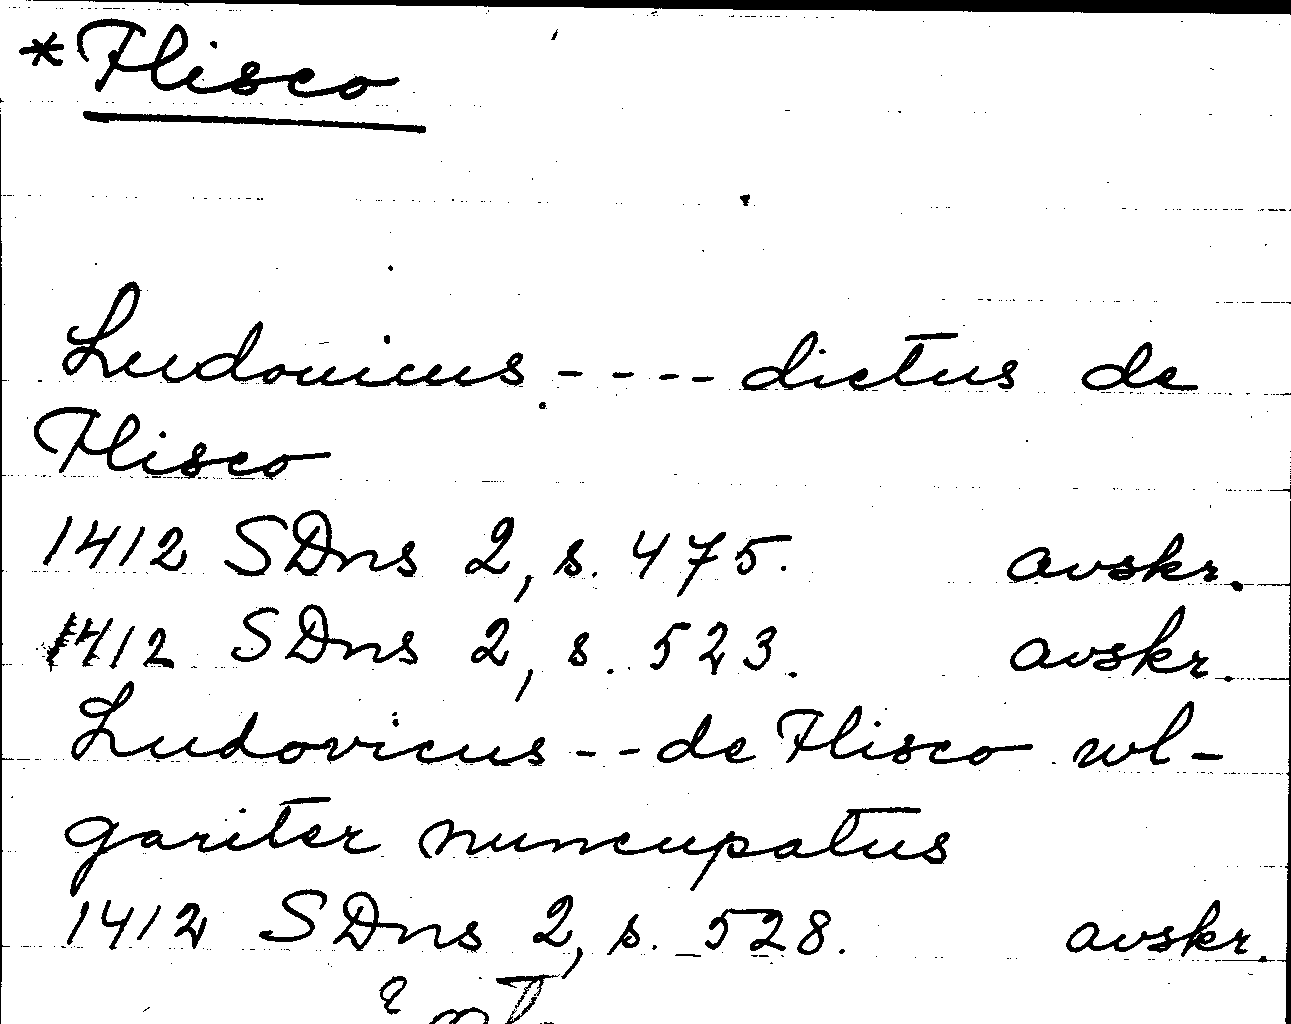 *Flisco
Ludouicus - - - - dictus de
Flisco
1412 SDns 2, s. 475. avskr.
1412 SDns 2, s. 523. avskr.
Ludovicus - - de Flisco wl-
gariter nuncupatus
1412 SDns 2, s. 528. avskr.